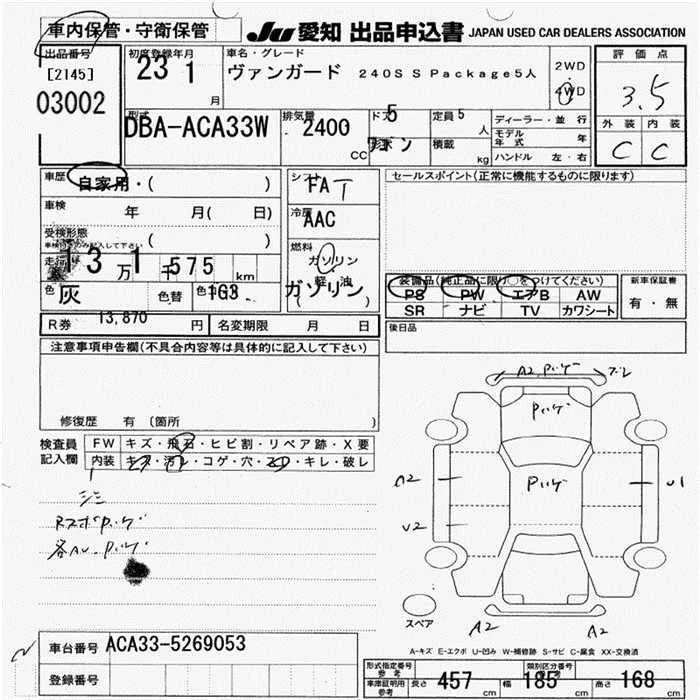 車内保管・守衛保管
JU 愛知 出品申込書 JAPAN USED CAR DEALERS ASSOCIATION
出品番号
[2145]
03002
初度登録年月
23 1 月
車名・グレード
ヴァンガード 240S S Package5人
2WD
4WD
評価点
3.5
外装 内装
C C
型式
DBA-ACA33W
排気量
2400 CC
ドア 5
形状 ワゴン
定員 5 人
積載 kg
ディーラー・並行
モデル年式 年
ハンドル 左・右
車歴 自家用・( )
車検 年 月( 日)
受検形態 ( )
走行 13万1千575 km
色 灰 色替 色 1G3
R券 13,870 円 名変期限 月 日
シフト FAT
冷房 AAC
燃料
ガソリン
軽油
ガソリン
( )
セールスポイント(正常に機能するものに限ります)
装備品(純正品に限り○をつけてください)
PS PW エアB AW
SR ナビ TV カワシート
新車保証書
有・無
後日品
注意事項申告欄(不具合内容等は具体的に記入して下さい)
修復歴 有 (箇所 )
検査員
記入欄
FW キズ・飛石・ヒビ割・リペア跡・X要
内装 キズ・汚レ・コゲ・穴・スレ・キレ・破レ
A2
U2
U1
A2
A2
スペア
A-キズ E-エクボ U-凹み W-補修跡 S-サビ C-腐食 XX-交換済
車台番号 ACA33-5269053
登録番号
形式指定番号
参考
類別区分番号
参考
車庫証明用
参考
長さ 457 cm 幅 185 cm 高さ 168 cm